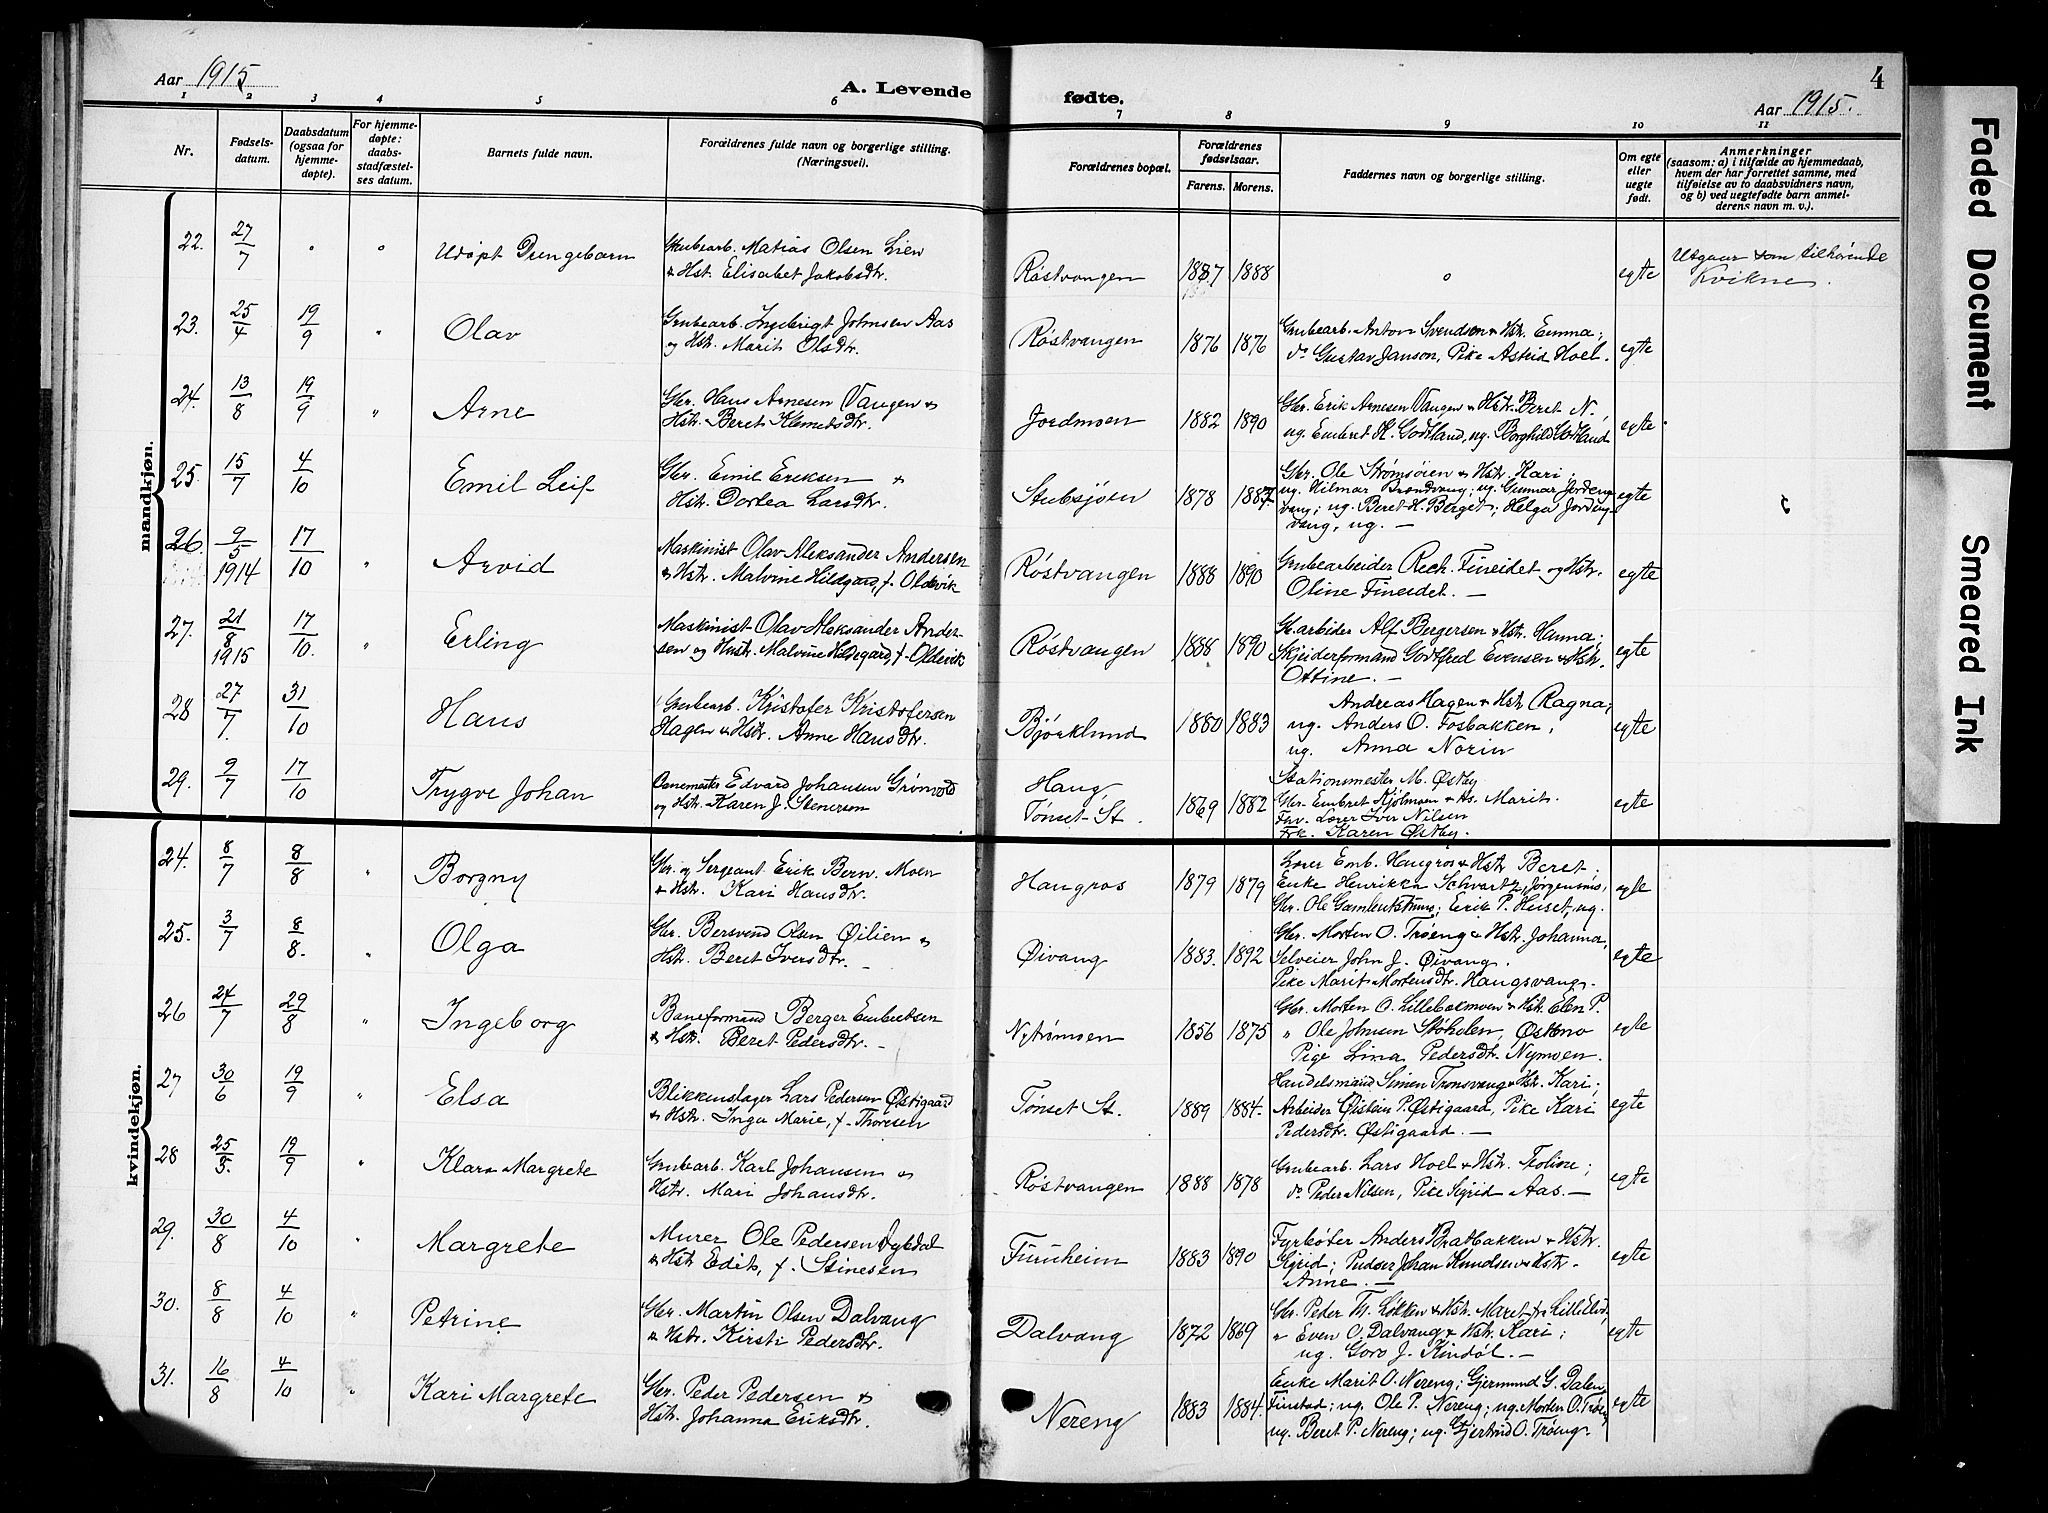 Aar 1915
A. Levende
fødte.
Aar 1915.
4
1 2 3 4 5 6 7 8 9 10 11
Nr.
Fødsels-
datum.
Daabsdatum
(ogsaa for
hjemme-
døpte).
For hjemme-
døpte:
daabs-
stadfæstel-
ses datum.
Barnets fulde navn.
Forældrenes fulde navn og borgerlige stilling.
(Næringsvei).
Forældrenes bopæl.
Forældrenes
fødselsaar.
Farens. Morens.
Faddernes navn og borgerlige stilling.
Om egte
eller
uegte
født.
Anmerkninger
(saasom: a) i tilfælde av hjemmedaab,
hvem der har forrettet samme, med
tilføielse av to daabsvidners navn,
og b) ved uegtefødte barn anmel-
derens navn m. v.).
mandkjøn.
22. 27/7 " " Udøpt Drengebarn
Grubearb. Matias Olsen Lien
& Hst. Elisabet Jakobsdtr.
Røstvangen 1887 1888 " egte
Utgaar som tilhørende
Kvikne.
23. 25/4 19/9 " Olav
Grubearb. Ingebrigt Johnsen Aas
og Hst. Marit Olsdtr.
Røstvangen 1876 1876
Grubearb. Anton Svendsen & Hst. Emma;
do Gustav Janson, Pike Astrid Hoel. egte
24. 13/8 19/9 " Arne
Gbr. Hans Arnesen Vangen &
Hst. Beret Klemedsdtr.
Jordmoen 1882 1890
Gbr. Erik Arnesen Vangen & Hst. Beret N.,
ug. Embret H. Godtland, ug. Borghild Godtland egte
25. 15/7 4/10 Emil Leif
Gbr. Emil Eriksen &
Hst. Dortea Larsdtr.
Stubsjøen 1878 1887.
Gbr. Ole Strømsøien & Hst. Kari;
ug. Hilmar Brandvang; ug. Gunnar Jordeng-
vang; ug. Beret H. Berget; Helga Jordeng-
vang, ug. — egte
26. 9/5 1914 17/10 " Arvid
Maskinist Olav Aleksander Andersen
& Hstr. Malvine Hildgard, f. Oldervik
Røstvangen 1888 1890
Grubearbeider Rech. Fineidet og Hstr.
Oline Fineidet. — egte
27. 21/8 1915 17/10. " Erling
Maskinist Olav Aleksander Ander-
sen og Hustr. Malvine Hildegard, f. Oldervik
Røstvangen 1888 1890
Gr.arbeider Alf Bergersen & Hstr. Hanna;
Skjeiderformand Godtfred Evensen & Hstr.
Ottine. — egte
28 27/7. 31/10 Hans
Grubearb. Kristofer Kristofersen
Hagen & Hstr. Anne Hansdtr.
Bjørklund 1880 1883
Andreas Hagen & Hst. Ragna;
ug. Anders O. Fosbakken;
ug. Anna Norin egte
29. 9/7 17/10 Trygve Johan
Banemester Edvard Johansen Grønvold
og Hst. Karen J. Stenersen
Haug
Tønset St. 1869 1882
Stationsmester M. Østby
Gbr. Embret Kjølmoen & Hs. Marit.
Frv. Lærer Iver Nilsen
Frk. Karen Østby. egte
kvindekjøn.
24. 8/7 8/8 " Borgny
Gbr. og Sergeant Erik Bern. Moen
& Hst. Kari Hansdtr.
Haugros 1879 1879
Lærer Emb. Haugros & Hstr Beret;
Enke Henrikka Schvartz, Jørgensmo;
Gbr. Ole Gamlentstuen; Eirik P. Huset, ug. egte
25. 3/7 8/8. " Olga
Gbr. Bersvend Olsen Øilien &
Hst. Beret Iversdtr. —
Øivang 1883. 1892
Gbr. Morten O. Trøeng & Hstr. Johanna,
Selveier John J. Øivang.
Pike Marit Mortensdtr. Haugsvang. egte
26 24/7 29/8 " Ingeborg
Baneformand Berger Embretsen
& Hst. Beret Pedersdtr. —
Nytrømoen 1856 1875
Gbr. Morten O. Lillebakmoen & Hst. Elen P.
" Ole Johnsen Støholen, Østamo
Pige Lina Pedersdtr. Nymoen. egte
27 30/6 19/9 " Elsa
Blikkenslager Lars Pedersen Østigaard
& Hst. Inga Marie, f. Thoresen
Tønset St. 1889 1884.
Handelsmand Simen Tronsvang & Hst. Kari;
Arbeider Øistein P. Østigaard, Pike Kari
Pedersdtr. Østigaard. — egte
28 25/5. 19/9 " Klara Margrete
Grubearb. Karl Johansen &
Hstr. Mari Johansdtr.
Røstvangen 1888 1878
Grubearb. Lars Hoel & Hstr. Teoline;
do Peder Nilsen, Pike Sigrid Aas. — egte
29. 30/8 4/10 " Margrete
Murer Ole Pedersen Dybdal
& Hst Edit, f. Stinesen
Furuheim 1883 1890
Fyrbøter Anders Bratbakken & Hstr.
Sigrid; Pudser Johan Knudsen & Hstr.
Anne. — egte
30. 8/8 4/10 " Petrine
Gbr. Martin Olsen Dalvang
& Hstr. Kirsti Pedersdtr.
Dalvang 1872 1869
Gbr. Peder Th. Løkken & Hst. Maret f. Lilleeld,
" Even O. Dalvang & Hstr. Kari;
ug. Goro J. Kindøl. — egte
31. 16/8 4/10 " Kari Margrete
Gbr. Peder Pedersen &
Hstr. Johanna Eriksdtr.
Nereng 1883 1884.
Enke Marit O. Nereng; Gjermund G. Dalen,
Finstad; ug. Ole P. Nereng; ug. Morten O. Trøeng
ug. Beret P. Nereng; ug. Gjertrud O. Trøeng. egte
Faded Document
Smeared Ink